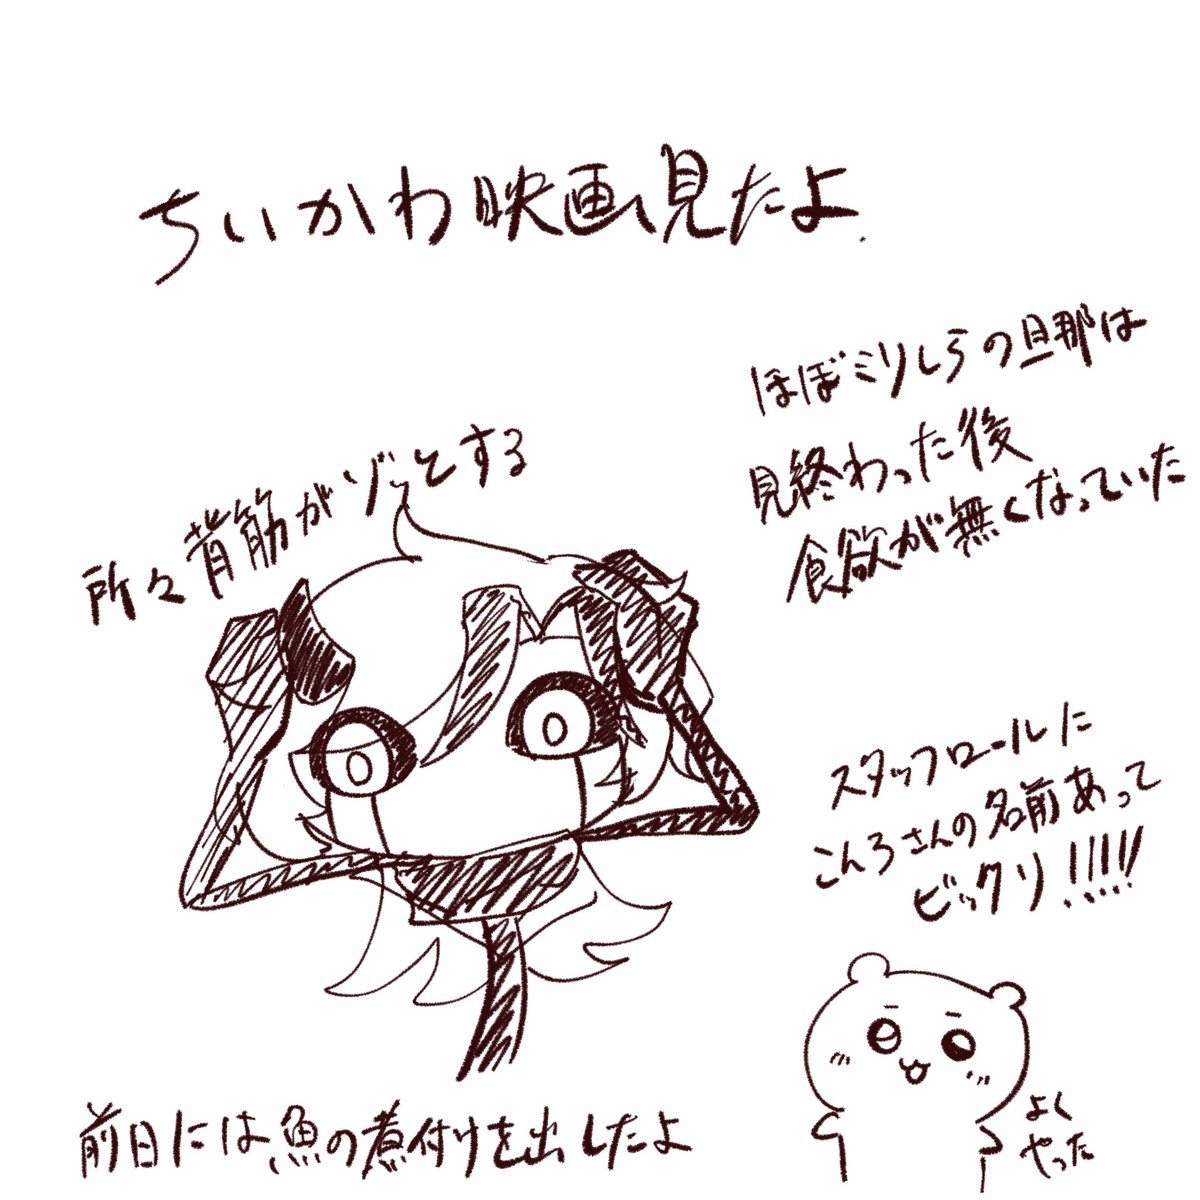 ちいかわ映画見たよ.
ほぼミリしらの旦那は
見終わった後
食欲が無くなっていた
所々背筋がゾッとする
スタッフロールに
こんろさんの名前あって
ビックリ!!!!!
よく
やった
前日には魚の煮付けを出したよ